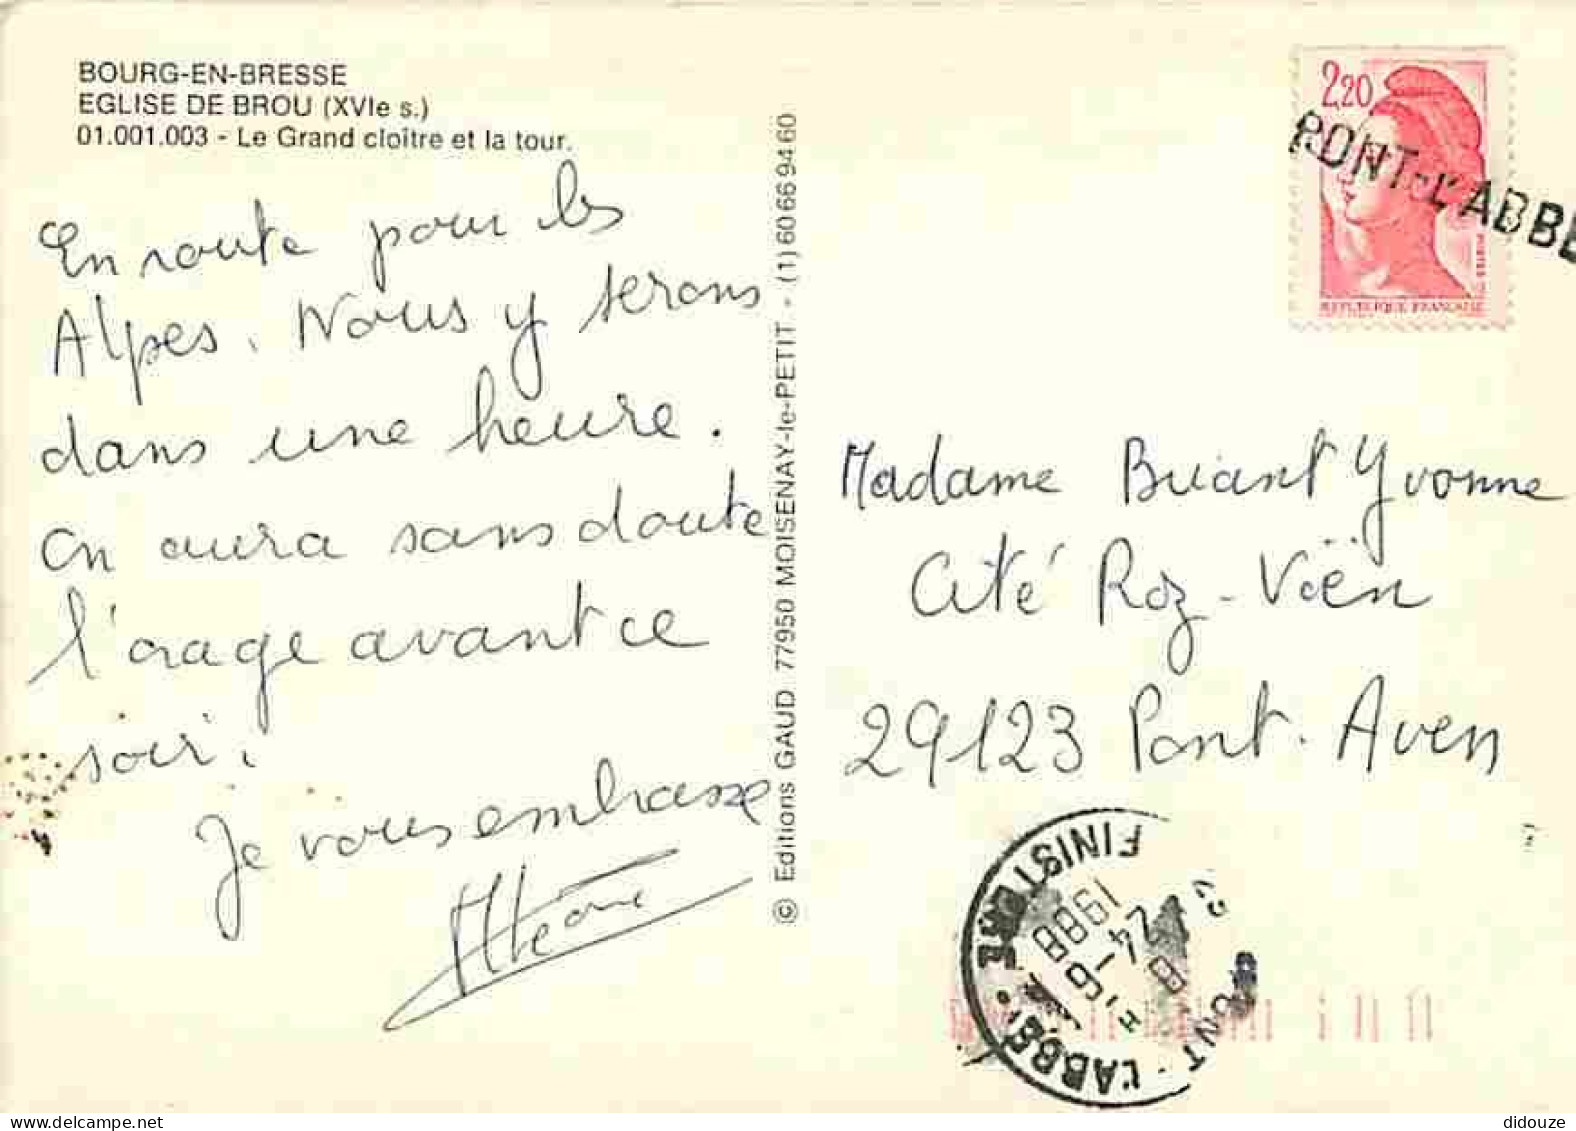 BOURG-EN-BRESSE
EGLISE DE BROU (XVIe s.)
01.001.003 - Le Grand cloître et la tour.
En route pour les
Alpes. Nous y serons
dans une heure.
On aura sans doute
l'orage avant ce
soir.
Je vous embrasse
© Editions GAUD 77950 MOISENAY-le-PETIT - (1) 60 66 94 60
2,20
REPUBLIQUE FRANÇAISE
PONT-L'ABBE
Madame Briant Yvonne
Cité Roz-Voën
29123 Pont-Aven
PONT-L'ABBE
FINISTERE
1988
didouze